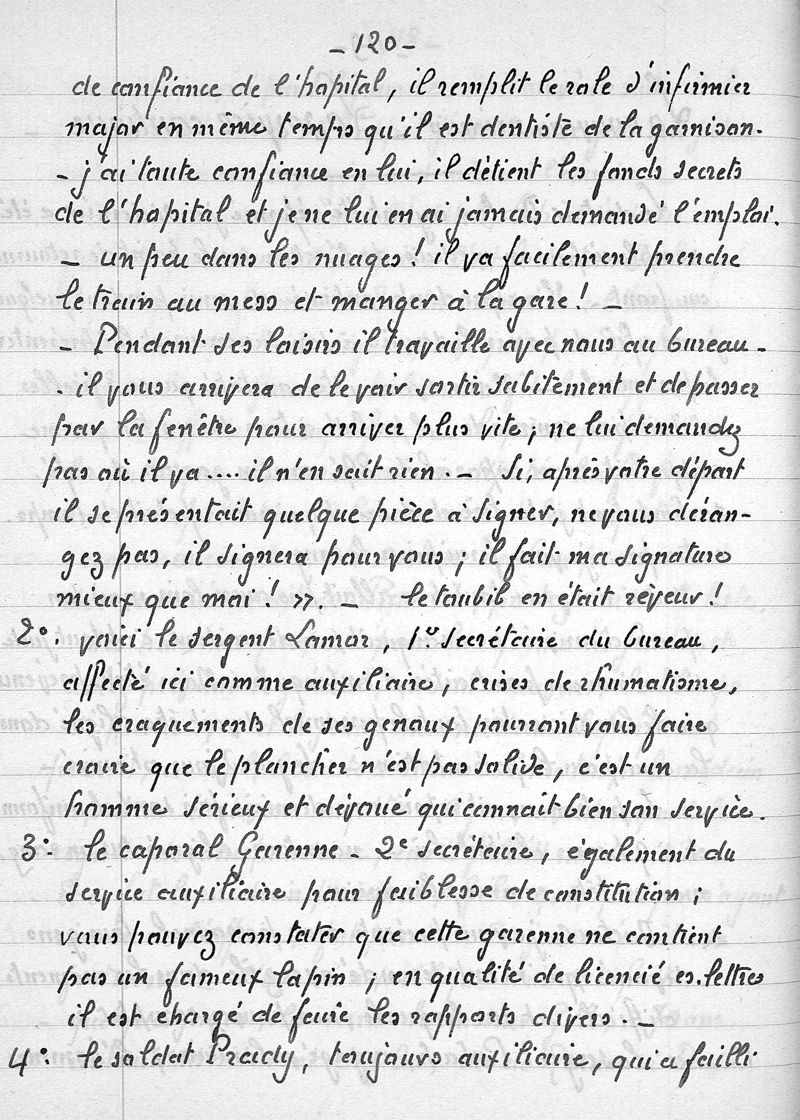 - 120 -
de confiance de l'hopital, il remplit le role d'infirmier
major en même temps qu'il est dentiste de la garnison.
- j'ai toute confiance en lui, il détient les fonds secrets
de l'hopital et je ne lui en ai jamais demandé l'emploi.
- un peu dans les nuages ! il va facilement prendre
le train au mess et manger à la gare ! -
- Pendant ses loisirs il travaille avec nous au bureau -
. il vous arrivera de le voir sortir subitement et de passer
par la fenêtre pour arriver plus vite ; ne lui demandez
pas où il va .... il n'en sait rien . - Si, après votre départ
il se présentait quelque pièce à signer, ne vous déran-
gez pas, il signera pour vous ; il fait ma signature
mieux que moi ! ». - le toubib en était rêveur !
2°: voici le sergent Lamor, 1er secrétaire du bureau,
affecté ici comme auxiliaire, crises de rhumatisme,
les craquements de ses genoux pourront vous faire
croire que le plancher n'est pas solide, c'est un
homme sérieux et dévoué qui connait bien son service.
3°: le caporal Garenne - 2e secrétaire, également du
service auxiliaire pour faiblesse de constitution ;
vous pouvez constater que cette garenne ne contient
pas un fameux lapin ; en qualité de licencié es.lettres
il est chargé de faire les rapports divers . -
4°: le soldat Prady, toujours auxiliaire, qui a failli